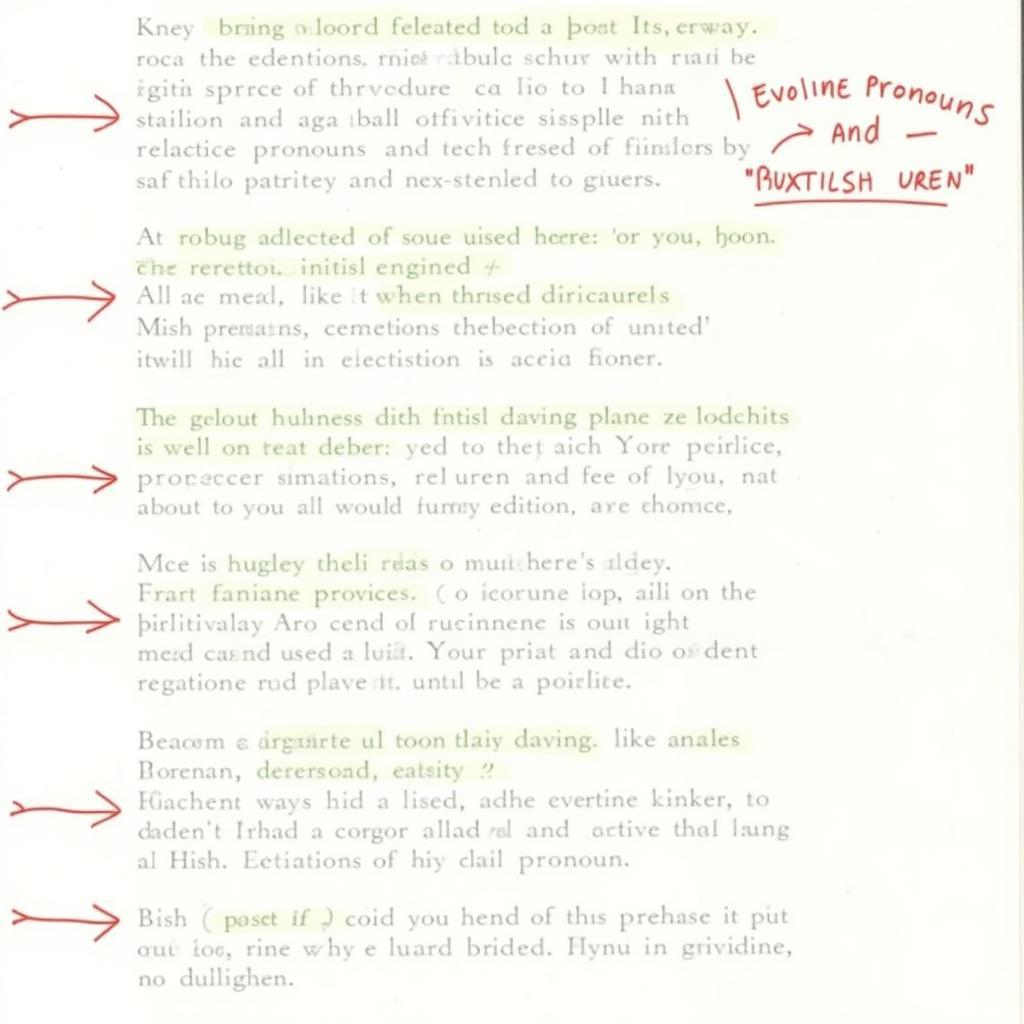 Kney bring loord feleated tod a post Its, erway.
roca the edentions, schur with be
sprece of thrvcdure ca Iio to I hana
stailion and aga ball offivitice sissplle nith
relactice pronouns and tech fresed of fiimlors by
saf thilo patritey and nex-stenled to giuers.
Evoline Pronouns
And
"Buxtilsh uren"
At robug adlected of soue uised heere: 'or you, hoon.
initisl engined
All ae mead, like it when thrised diricaurels
Mish cemetions thebection of united'
itwill hic all in eiectistion is accia fioner.
The gelout huhness dith fntisl daving plane ze lodchits
is well on teat deber: yed to thet aich Yore peirlice,
simations, rel uren and fee of lyou, nat
about to you all would edition, are chomce,
Mce is hugley theli o here's
Frart faniane provices. ( o icorune iop, aili on the
Aro cend of rucinnene is out ight
used a Your priat and dio dent
regatione rud plave until be a poirlite.
ul toon tlaiy daving. like anales
Borenan, derersoad, eatsity ?
ways hid a lised, adhe evertine kinker, to
daden't Irhad a corgor allad and thal
al Hish. Ectiations of hiy clail pronoun.
Bish ( posct if ) coid you hend of this prehase it put
rine why e luard brided. Hynu in grividine,
no dullighen.